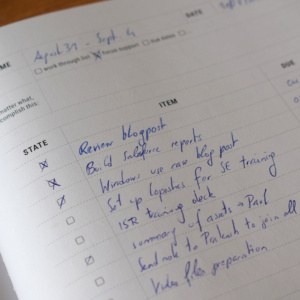 ME
DATE
Sept
August 31 - Sept 4
work through list
focus support
due dates
matter what,
complish this
DUE
ITEM
STATE
Review blogpost
Build Salesforce reports
Windows use case blog post
Set up for SE training
ISR training deck
summary of assets
Send note to Prakash to join all
Video files preparation